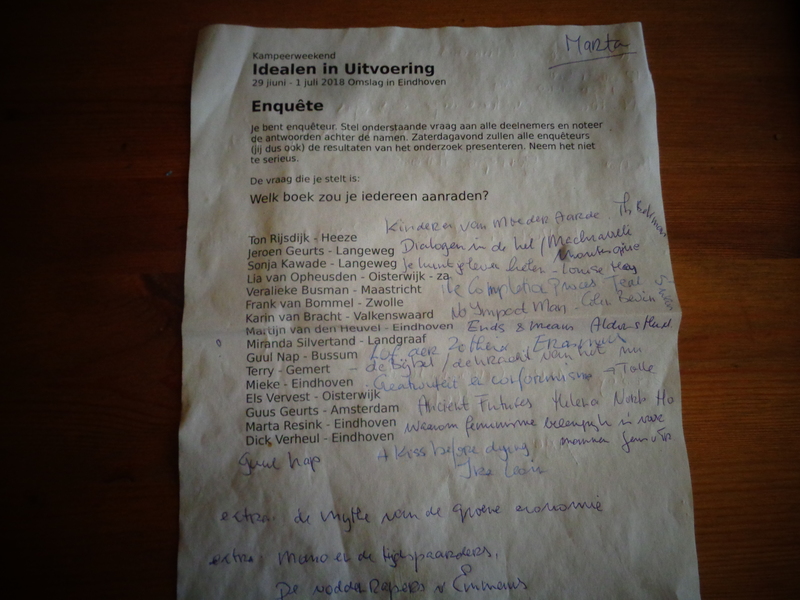 Marta
Kampeerweekend
Idealen in Uitvoering
29 jiuni - 1 juli 2018 Omslag in Eindhoven
Enquête
Je bent enquêteur. Stel onderstaande vraag aan alle deelnemers en noteer
de antwoorden achter de namen. Zaterdagavond zullen alle enquêteurs
(jij dus ook) de resultaten van het onderzoek presenteren. Neem het niet
te serieus.
De vraag die je stelt is:
Welk boek zou je iedereen aanraden?
Kinderen van Moeder Aarde Th
Ton Rijsdijk - Heeze
Jeroen Geurts - Langeweg Dialogen in de hel / Machiavelli
Sonja Kawade - Langeweg Je kunt je leven helen - Louise Hay
Lia van Opheusden - Oisterwijk - za
Veralieke Busman - Maastricht The Completion Proces Teal
Frank van Bommel - Zwolle
Karin van Bracht - Valkenswaard No Impact Man - Colin Bevin
Martijn van den Heuvel - Eindhoven Ends & means Aldous
Miranda Silvertand - Landgraaf
Guul Nap - Bussum Lof der Zotheid Erasmus
Terry - Gemert - de Bijbel / de kracht van het nu
Mieke - Eindhoven - Creativiteit & conformisme →
Els Vervest - Oisterwijk
Guus Geurts - Amsterdam Ancient Futures Helena Norb Ho
Marta Resink - Eindhoven waarom feminisme belangrijk is voor
Dick Verheul - Eindhoven mannen
Guul Nap A kiss before dying
Ira Levin
extra: de mythe van de groene economie
extra: Momo en de tijdspaarders,
De voddenrapers v Emmaus